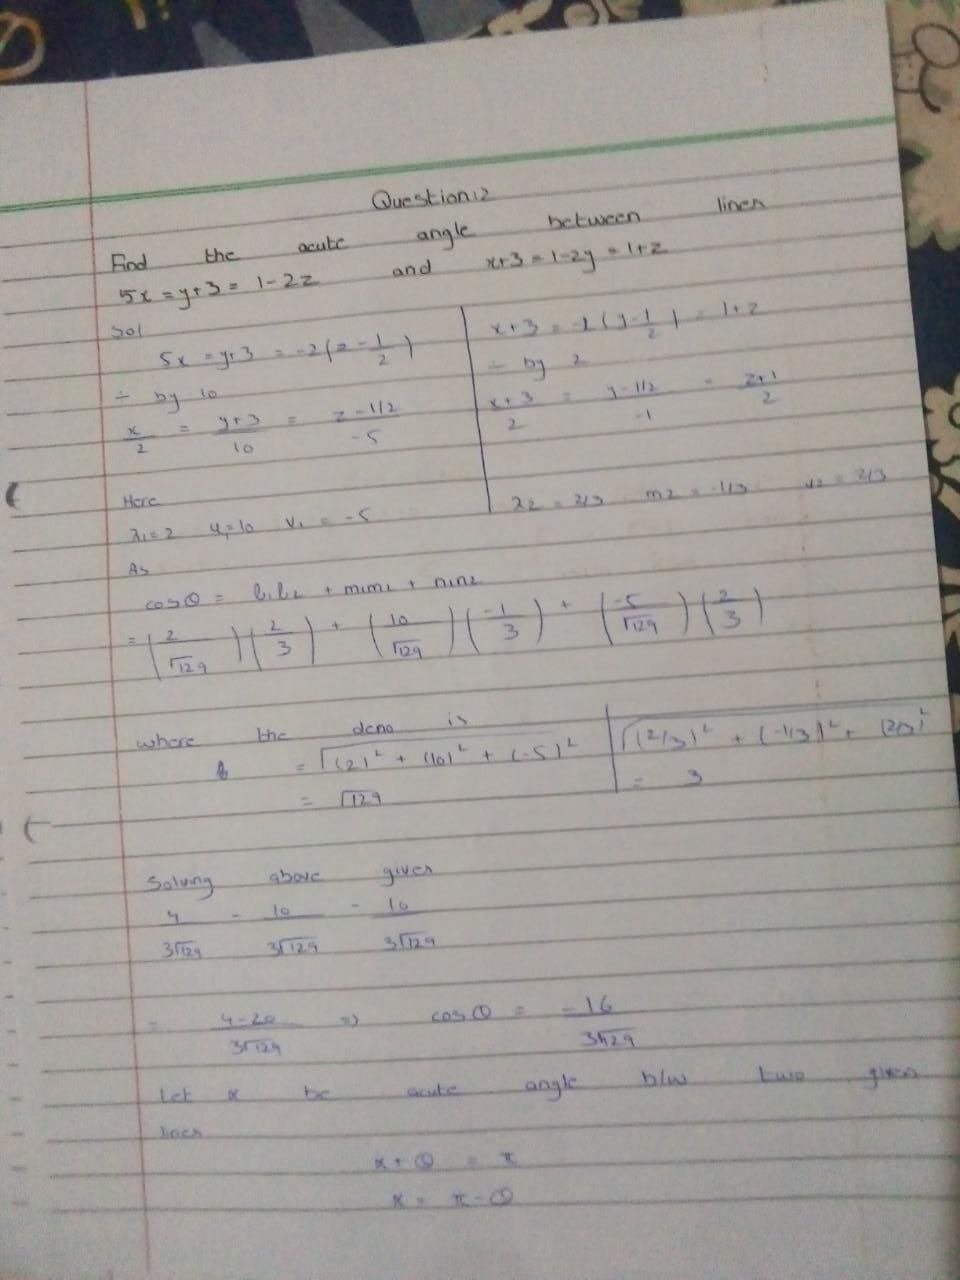 Question:2
Find the acute angle between lines
5x = y+3 = 1-2z and x+3 = 1-2y = 1+z
Sol
5x = y+3 = -2(z - 1/2)
÷ by 10
x/2 = y+3/10 = z-1/2/-5
x+3 = -2(y-1/2) = 1+z
÷ by 2
x+3/2 = y-1/2/-1 = z+1/2
Here
λ1=2 μ1=10 v1 = -5
λ2 = 2/3 m2 = -1/3 v2 = 2/3
As
cosθ = l1l2 + m1m2 + n1n2
= (2/√129)(2/3) + (10/√129)(-1/3) + (-5/√129)(2/3)
where the deno is
= √(2)² + (10)² + (-5)²
= √129
√(2/3)² + (-1/3)² + (2/3)²
= 3
Solving above given
4/3√129 - 10/3√129 - 10/3√129
= 4-20/3√129 => cosθ = -16/3√129
Let α be acute angle b/w two given
lines
α + θ = π
α = π - θ